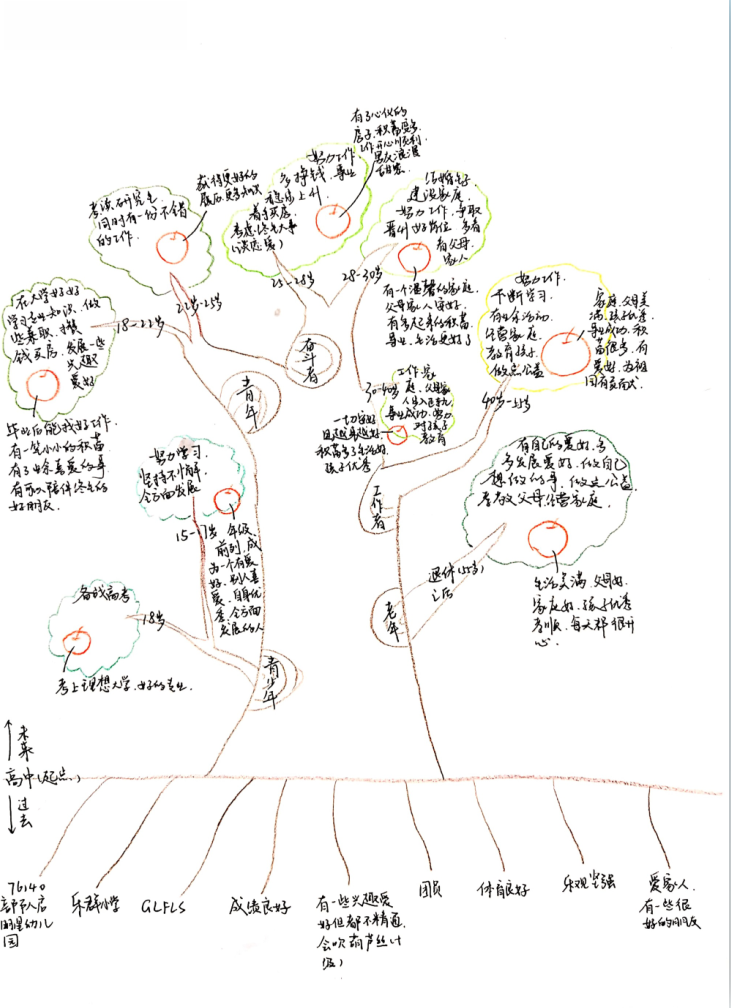 有了心仪的
房子,积蓄更多,
工作开心顺利
男友浪漫
努力工作
多挣钱,专业
稳步上升
着手买房
考虑终生大事
(谈恋爱)
获得更好的
学历,更多知识
考读研究生
同时有一份不错
的工作.
结婚生子
建设家庭.
努力工作,争取
晋升好岗位 多看
看父母
家人
22岁-25岁
25-28岁
28-30岁
有一个温馨的家庭
父母家人安好.
有多起来的积蓄
专业、生活更好了
在大学好好
学习专业知识,做
些兼职,攒
钱买房,发展一些
兴趣
爱好
18-22岁
毕业后能找好工作.
有一笔小小的积蓄
有了业余喜爱的事
有可以陪伴终生的
好朋友.
奋斗者
青年
努力工作.
不断学习.
有业余活动
经营家庭
教育孩子
做点公益
家庭,父母美
满,孩子优秀
专业成功,积
蓄很多,有
爱好,为祖
国有贡献
工作,家
庭,父母家
人
事业成功.努力
对孩子
教育
30-40岁
一切安好
且越来越好
积蓄多了生活好,
孩子优秀
40岁-55岁
工作者
努力学习
坚持不懈
全方面发展
15-17岁
年级
前列,成
为一个有爱
好,别人喜
爱,自身优
秀,全方面
发展的人
有自己的爱好,多
多发展爱好.做自己
想做的事,做点公益
孝敬父母,经营家庭.
退休(55岁)
之后
老年
生活美满,父母好.
家庭好,孩子优秀
孝顺,每天都很开
心.
备战高考
18岁
考上理想大学,好的专业.
青少年
未来
高中(起点)
过去
启明星幼儿
园
乐群小学
GLFLS
成绩良好
有一些兴趣爱
好但都不精通
会吹葫芦丝(十
级)
团员
体育良好
乐观坚强
爱家人.
有一些很
好的朋友